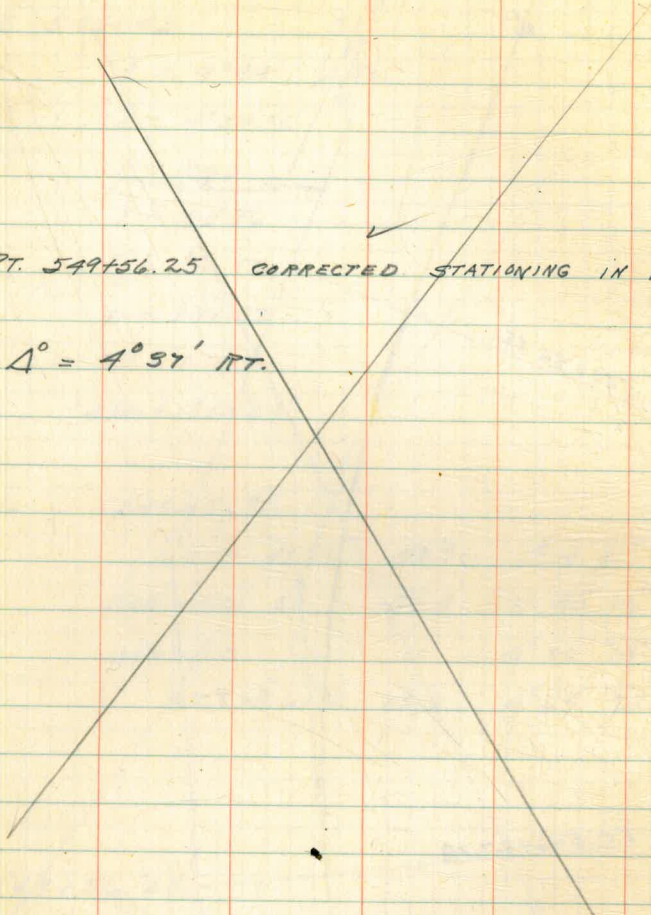 PT. 549+56.25 CORRECTED STATIONING IN
Δ° = 4° 37' RT.